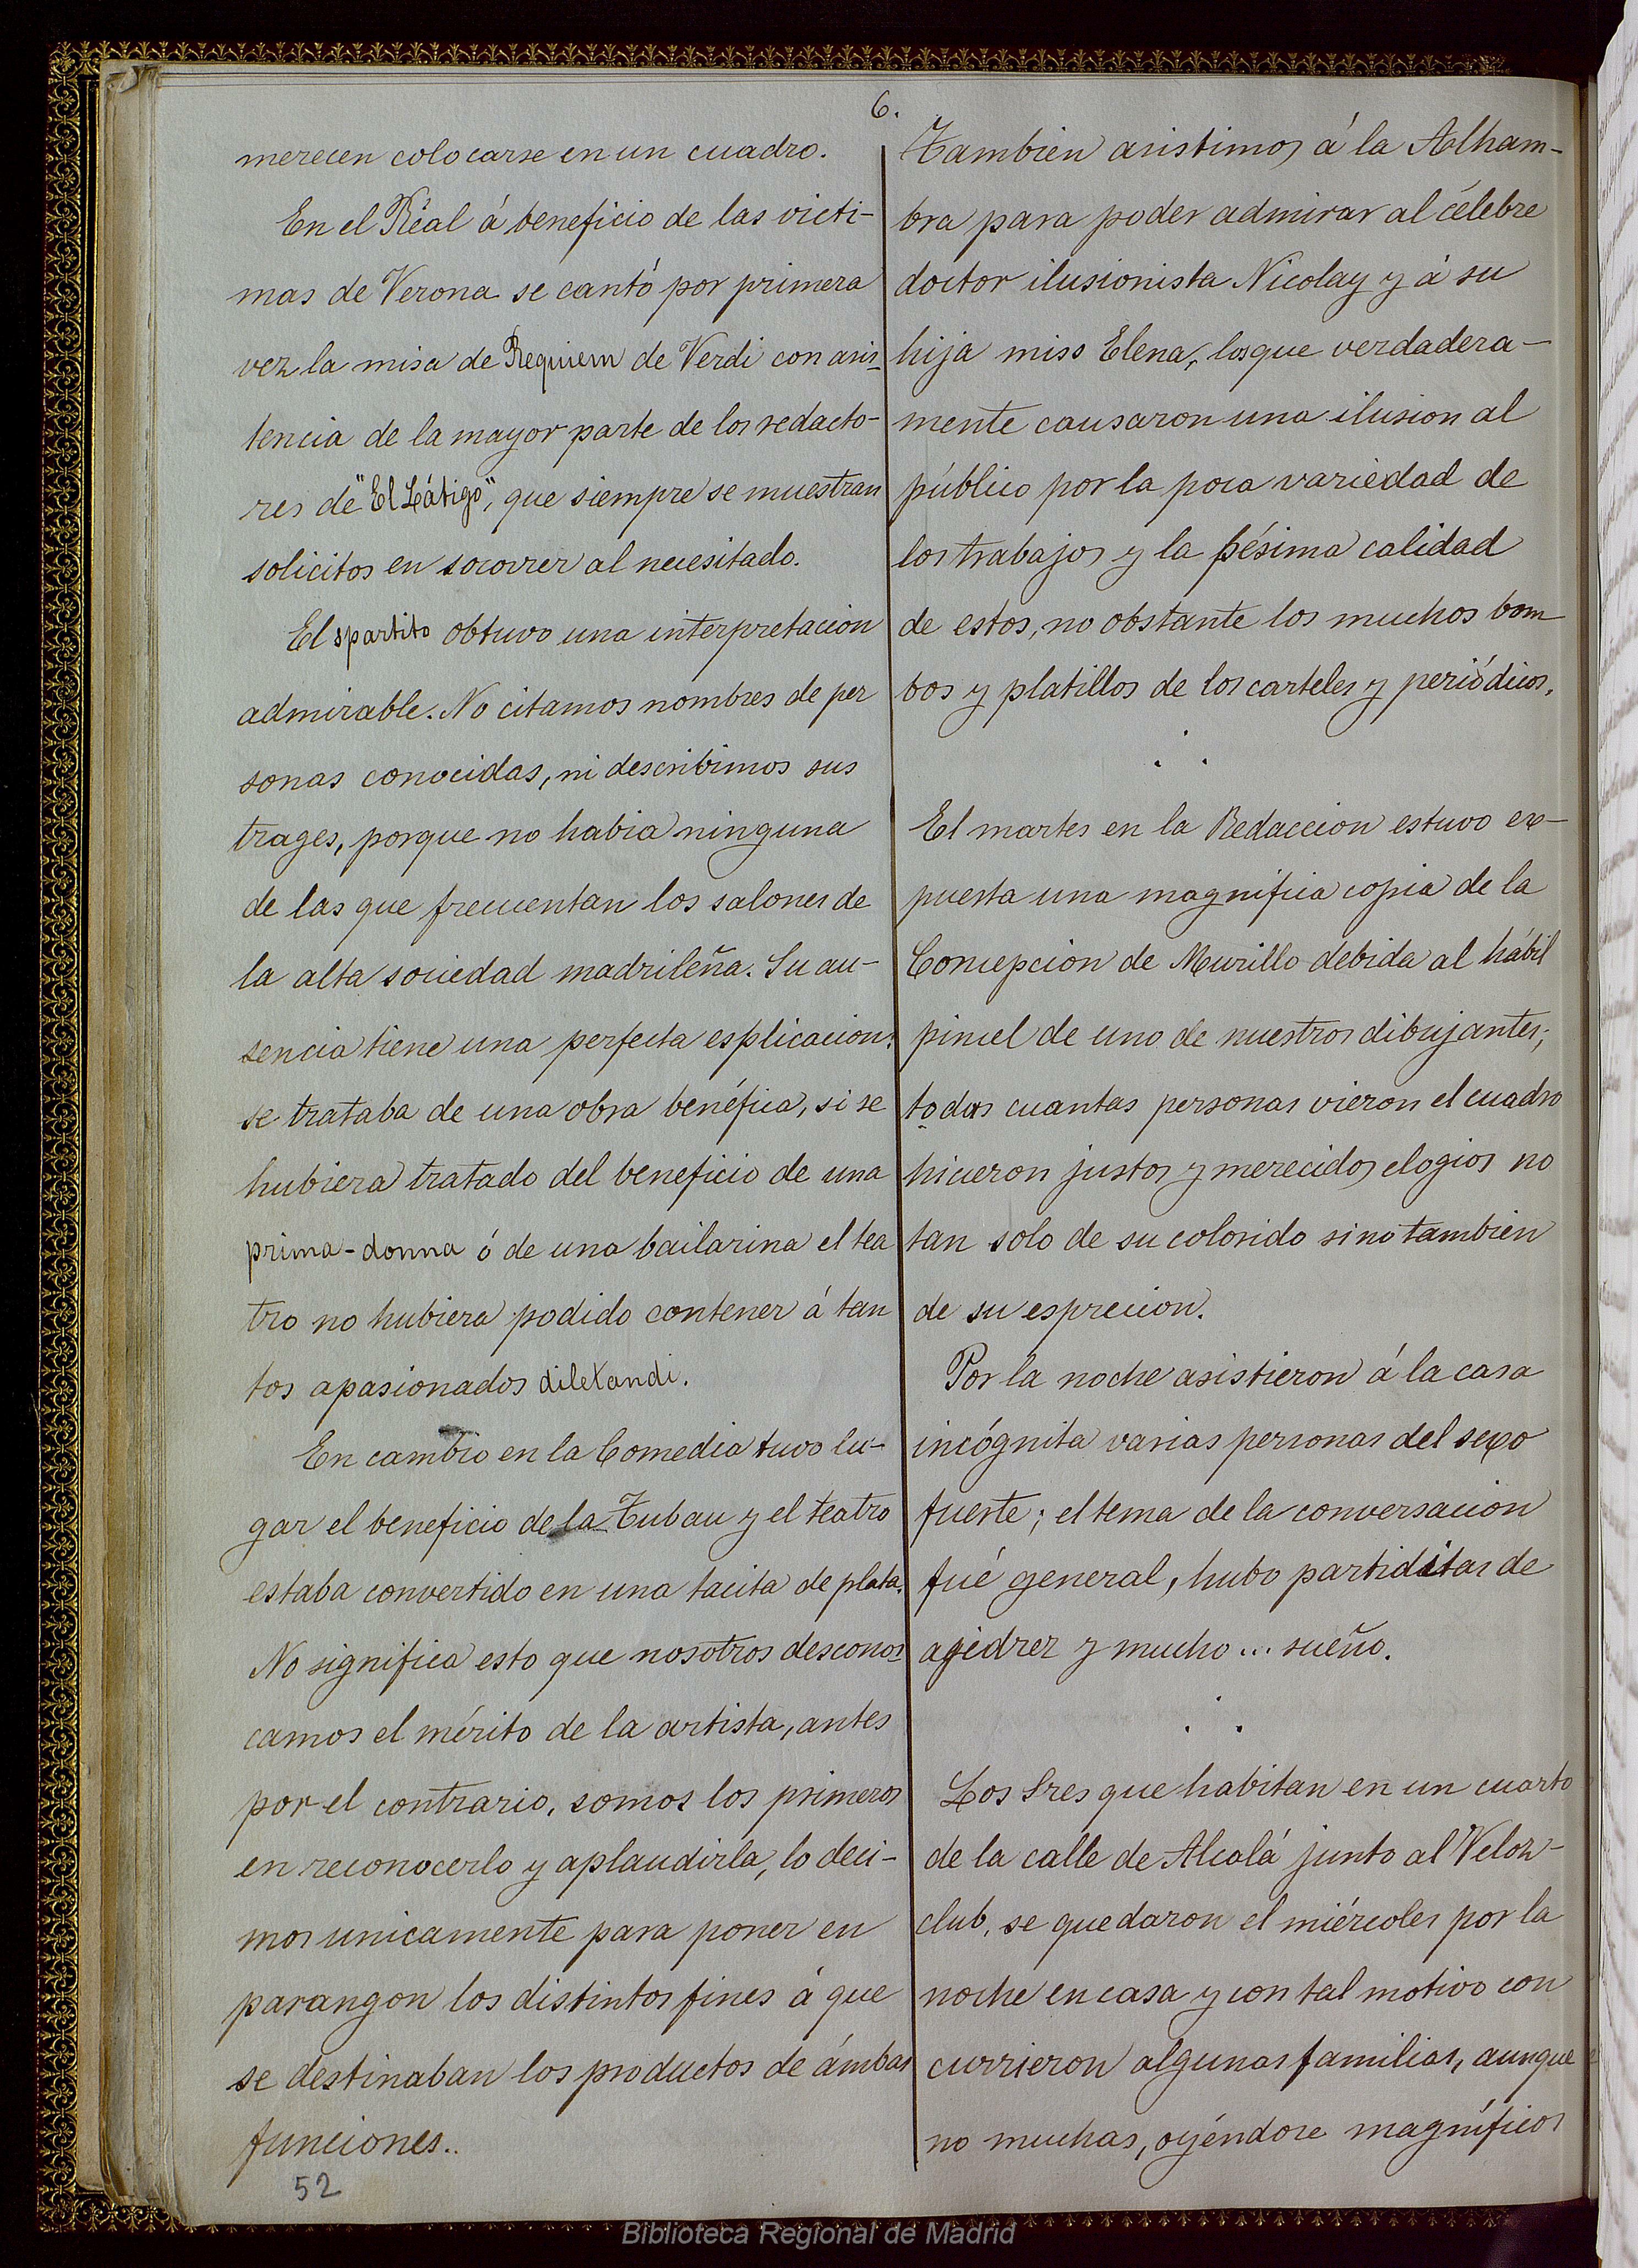 6.
merecen colocarse en un cuadro.
En el Real á beneficio de las victi-
mas de Verona se cantó por primera
vez la misa de Requiem de Verdi con asis-
tencia de la mayor parte de los redacto-
res de "El Látigo", que siempre se muestran
solicitos en socorrer al necesitado.
El spartito obtuvo una interpretacion
admirable. No citamos nombres de per
sonas conocidas, ni describimos sus
trages, porque no habia ninguna
de las que frecuentan los salones de
la alta sociedad madrileña. Su au-
sencia tiene una perfecta esplicacion:
se trataba de una obra benéfica, si se
hubiera tratado del beneficio de una
prima-donna ó de una bailarina el tea
tro no hubiera podido contener á tan
tos apasionados diletandi.
En cambio en la Comedia tuvo lu-
gar el beneficio de la Tubau y el teatro
estaba convertido en una tacita de plata.
No significa esto que nosotros descono-
camos el mérito de la artista, antes
por el contrario, somos los primeros
en reconocerlo y aplaudirla, lo deci-
mos unicamente para poner en
parangon los distintos fines á que
se destinaban los productos de ámbas
funciones..
52
Tambien asistimos á la Alham-
bra para poder admirar al célebre
doctor ilusionista Nicolay y á su
hija miss Elena, los que verdadera-
mente causaron una ilusion al
público por la poca variedad de
los trabajos y la pésima calidad
de estos, no obstante los muchos bom
bos y platillos de los carteles y periódicos.
El martes en la Redaccion estuvo ex-
puesta una magnifica copia de la
Concepcion de Murillo debida al hábil
pincel de uno de nuestros dibujantes;
todas cuantas personas vieron el cuadro
hicieron justos y merecidos elogios no
tan solo de su colorido sino tambien
de su esprecion.
Por la noche asistieron á la casa
incógnita varias personas del sexo
fuerte; el tema de la conversacion
fué general, hubo partiditas de
ajedrez y mucho... sueño.
Los Sres que habitan en un cuarto
de la calle de Alcalá junto al Veloz-
club, se quedaron el miércoles por la
noche en casa y con tal motivo con
currieron algunas familias, aunque
no muchas, oyéndose magníficos
Biblioteca Regional de Madrid